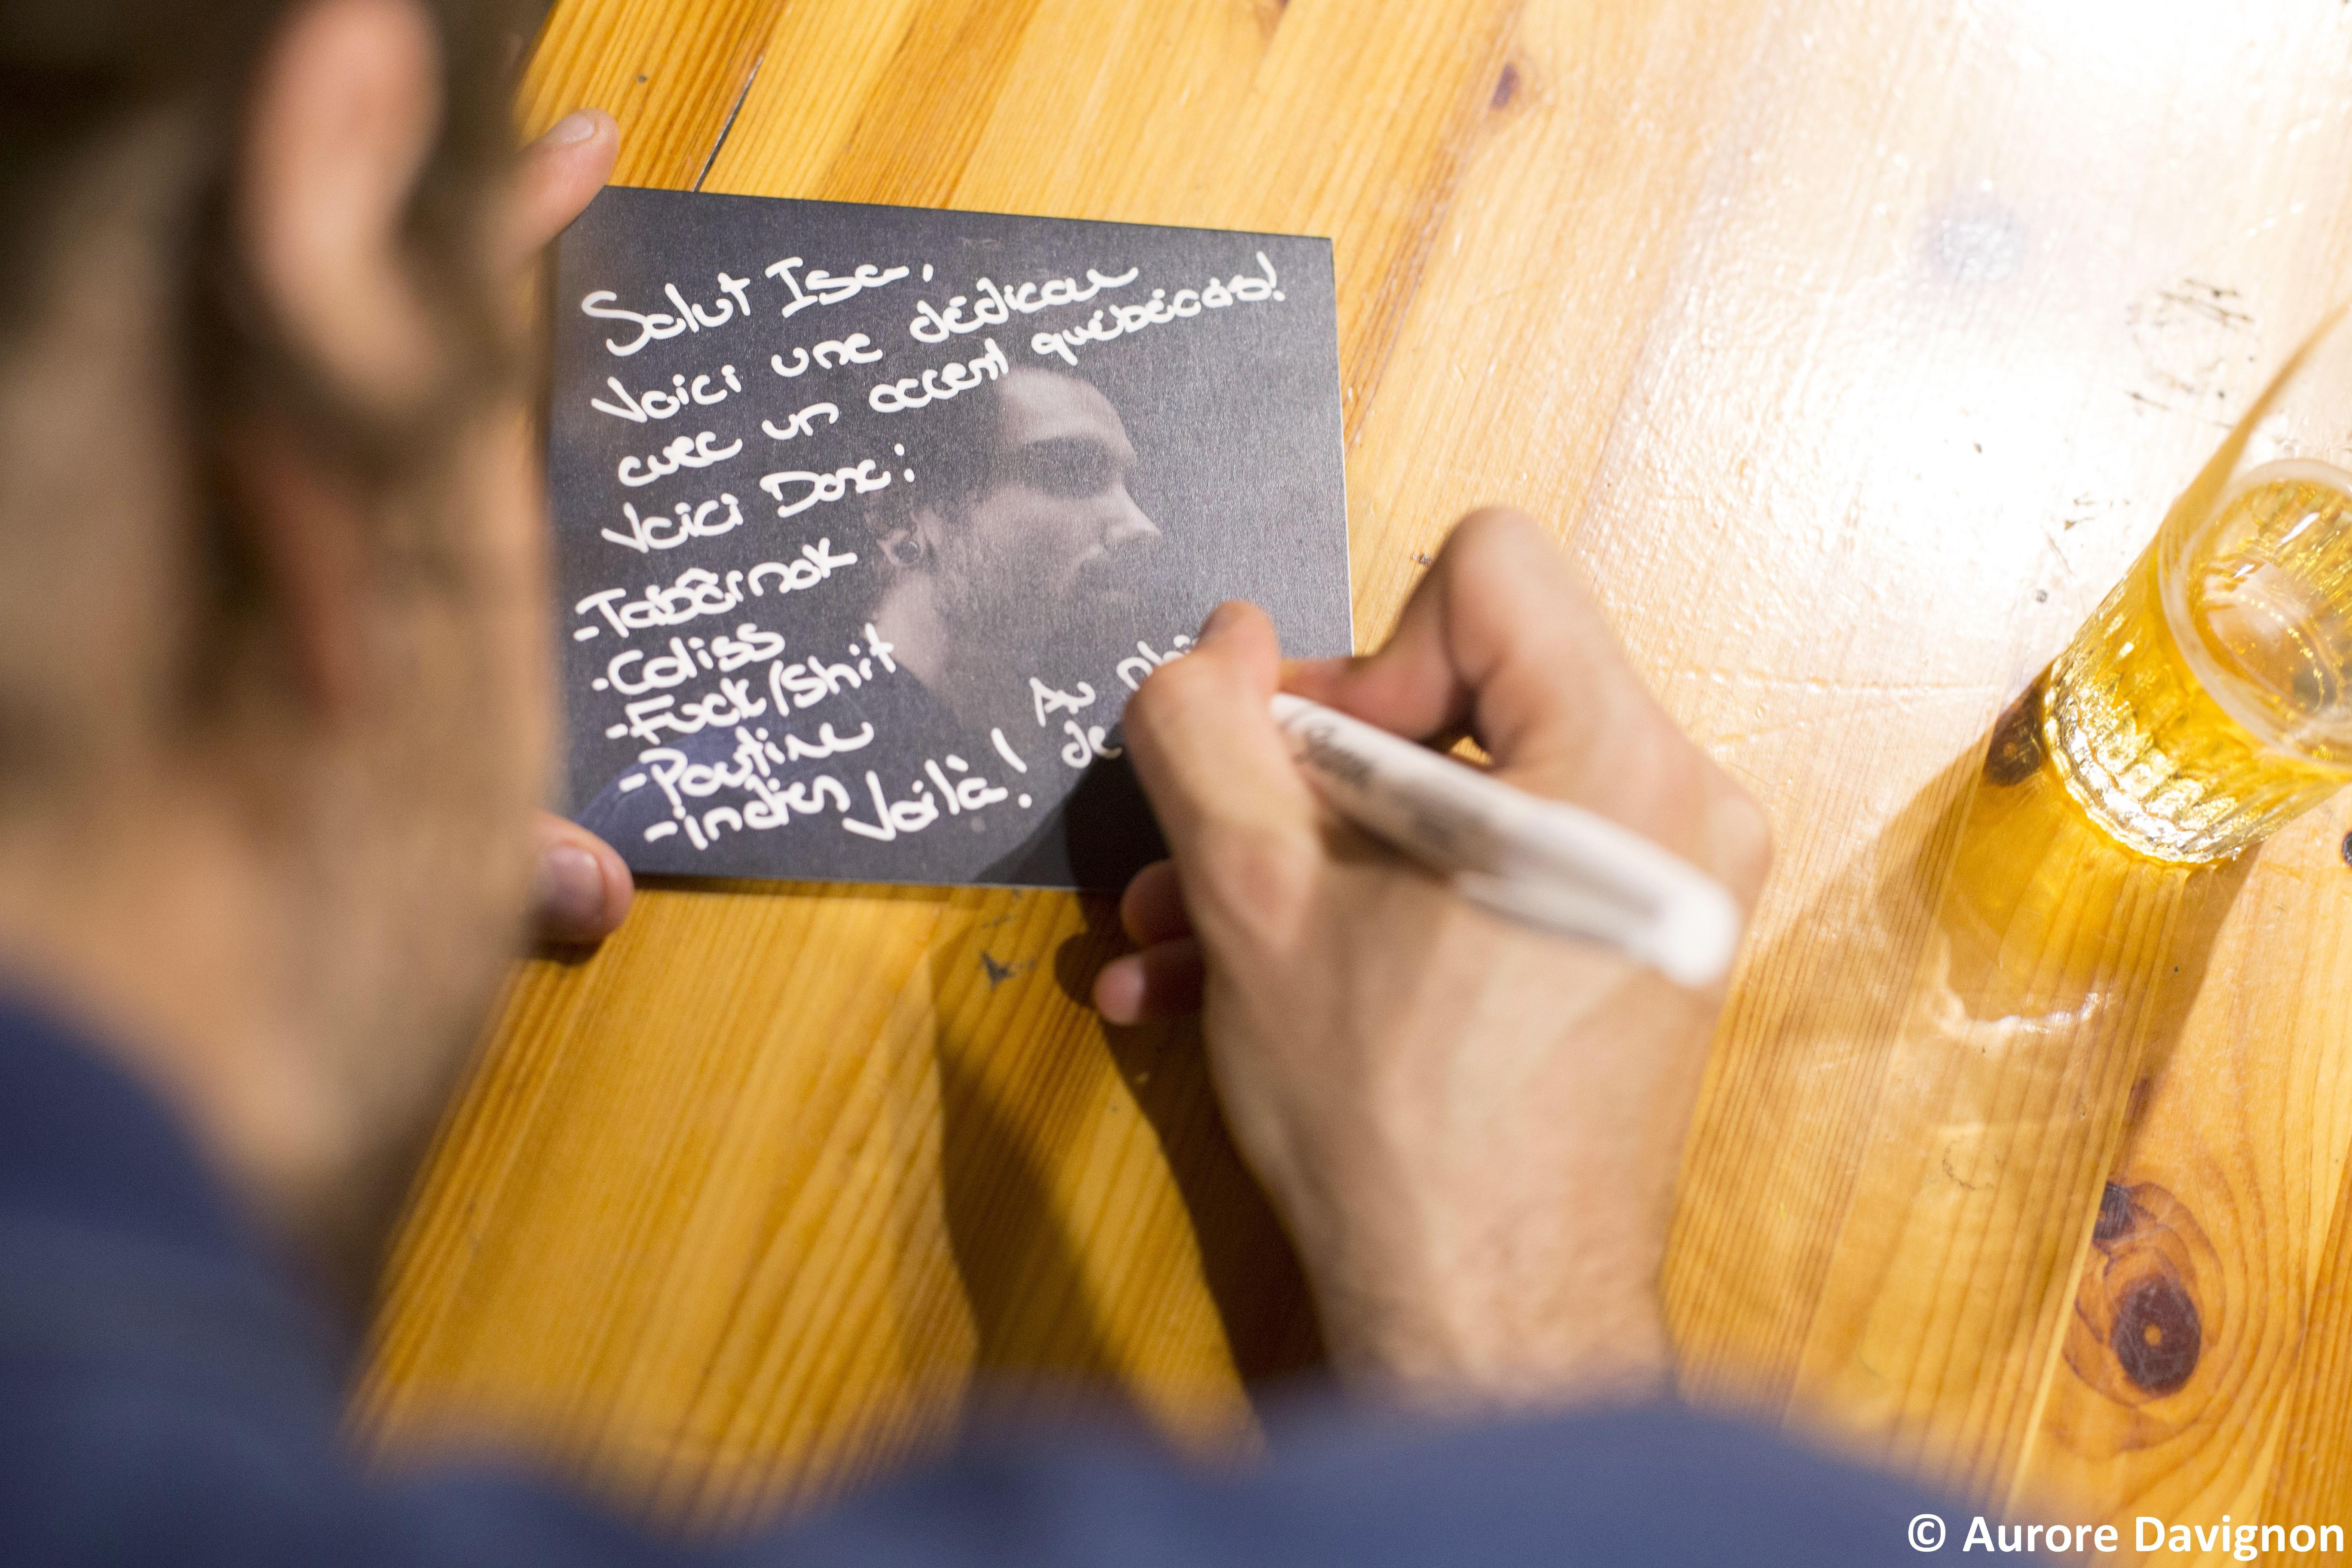 Salut Isa,
Voici une dédicace
avec un accent québécois!
Voici Donc:
-Tabârnak
-Caliss
-Fuck/Shit
-Poutine
-indien
Voilà!
Au
de
© Aurore Davignon